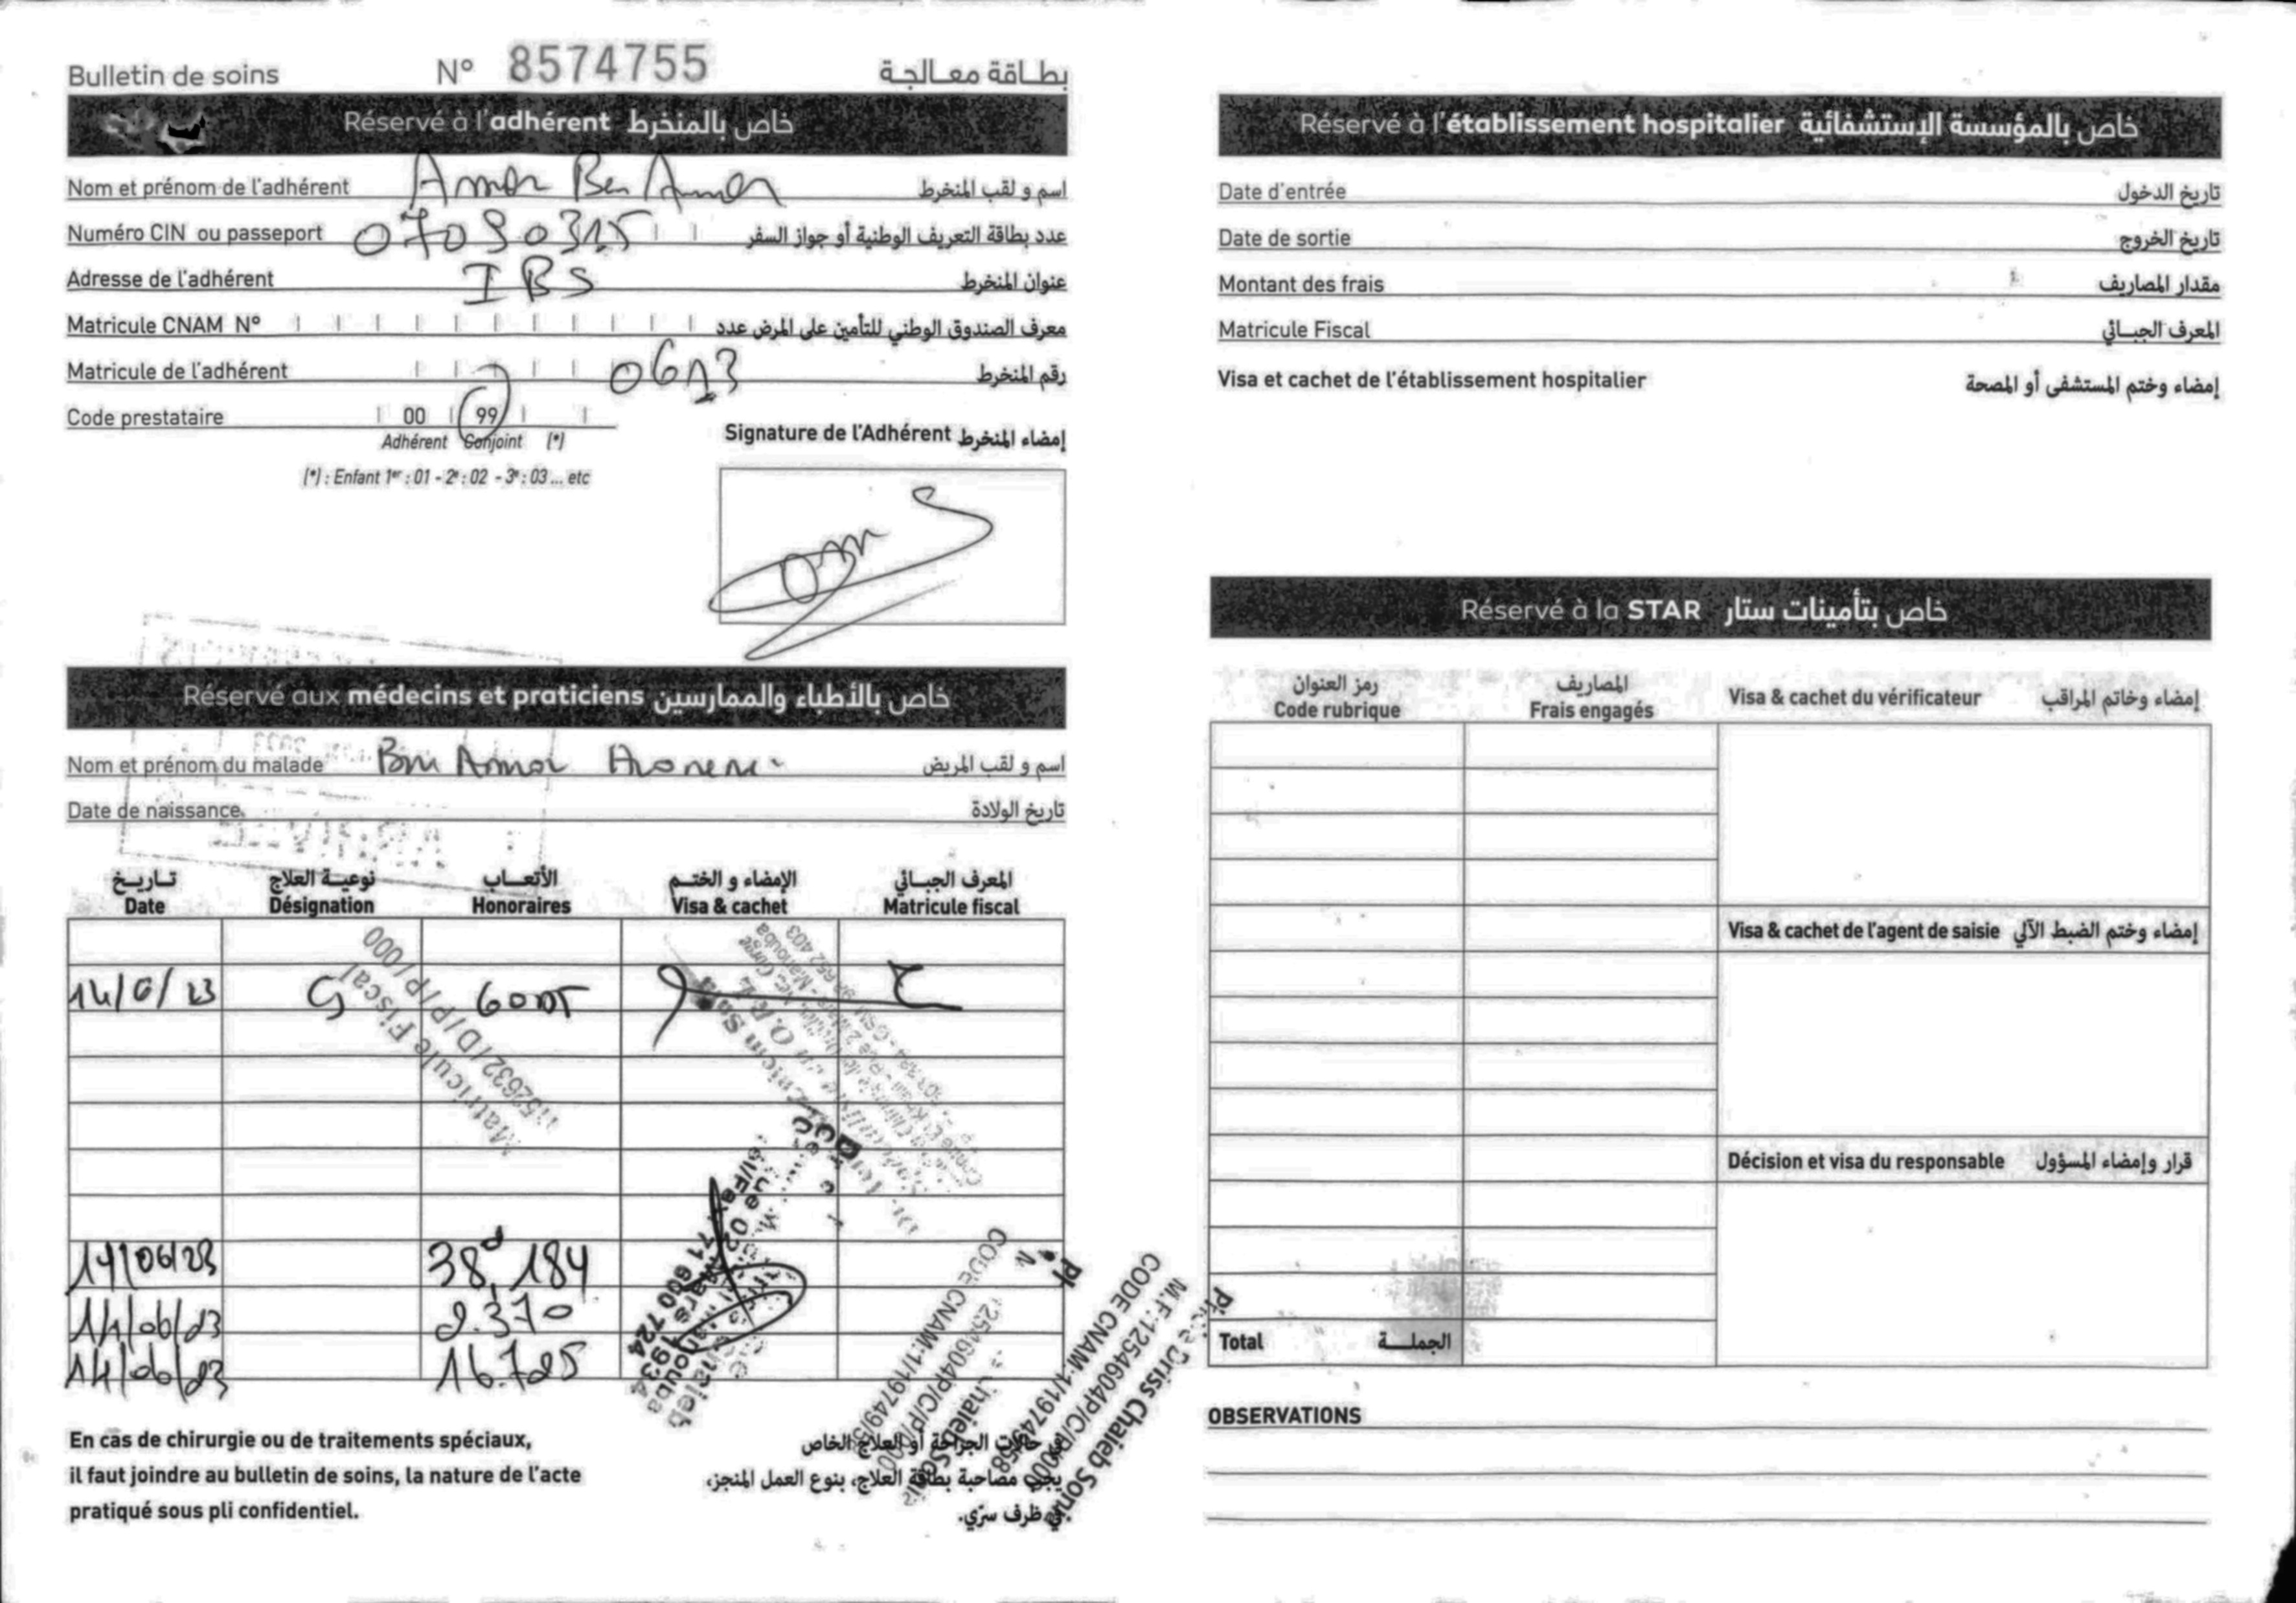 Bulletin de soins N° 8574755 بطاقة معالجة
Réservé à l'adhérent خاص بالمنخرط
Nom et prénom de l'adhérent Amor Ben Amor اسم و لقب المنخرط
Numéro CIN ou passeport 07090315 عدد بطاقة التعريف الوطنية أو جواز السفر
Adresse de l'adhérent IBS عنوان المنخرط
Matricule CNAM N° معرف الصندوق الوطني للتأمين على المرض عدد
Matricule de l'adhérent 0613 رقم المنخرط
Code prestataire 00 99
Adhérent Conjoint (*)
(*) : Enfant 1er : 01 - 2e : 02 - 3e : 03 ... etc
Signature de l'Adhérent إمضاء المنخرط
Réservé aux médecins et praticiens خاص بالأطباء والممارسين
Nom et prénom du malade Ben Amor اسم و لقب المريض
Date de naissance تاريخ الولادة
تاريخ نوعية العلاج الأتعاب الإمضاء و الختم المعرف الجبائي
Date Désignation Honoraires Visa & cachet Matricule fiscal
14/6/23 G 60DT
Matricule Fiscal
/D/P/P/000
14/06/23 38d,184
14/06/23 2.370
14/06/23 16.725
71 600 724
CODE CNAM:1/19749/
M.F:1254604P/C/P/000
CODE CNAM:1/19749/58
Driss Chaieb Sonia
En cas de chirurgie ou de traitements spéciaux,
il faut joindre au bulletin de soins, la nature de l'acte
pratiqué sous pli confidentiel.
في حالات الجراحة أو العلاج الخاص
يجب مصاحبة بطاقة العلاج، بنوع العمل المنجز،
في ظرف سرّي.
Réservé à l'établissement hospitalier خاص بالمؤسسة الإستشفائية
Date d'entrée تاريخ الدخول
Date de sortie تاريخ الخروج
Montant des frais مقدار المصاريف
Matricule Fiscal المعرف الجبائي
Visa et cachet de l'établissement hospitalier إمضاء وختم المستشفى أو المصحة
Réservé à la STAR خاص بتأمينات ستار
رمز العنوان المصاريف
Code rubrique Frais engagés Visa & cachet du vérificateur إمضاء وخاتم المراقب
Visa & cachet de l'agent de saisie إمضاء وختم الضبط الآلي
Décision et visa du responsable قرار وإمضاء المسؤول
Total الجملة
OBSERVATIONS